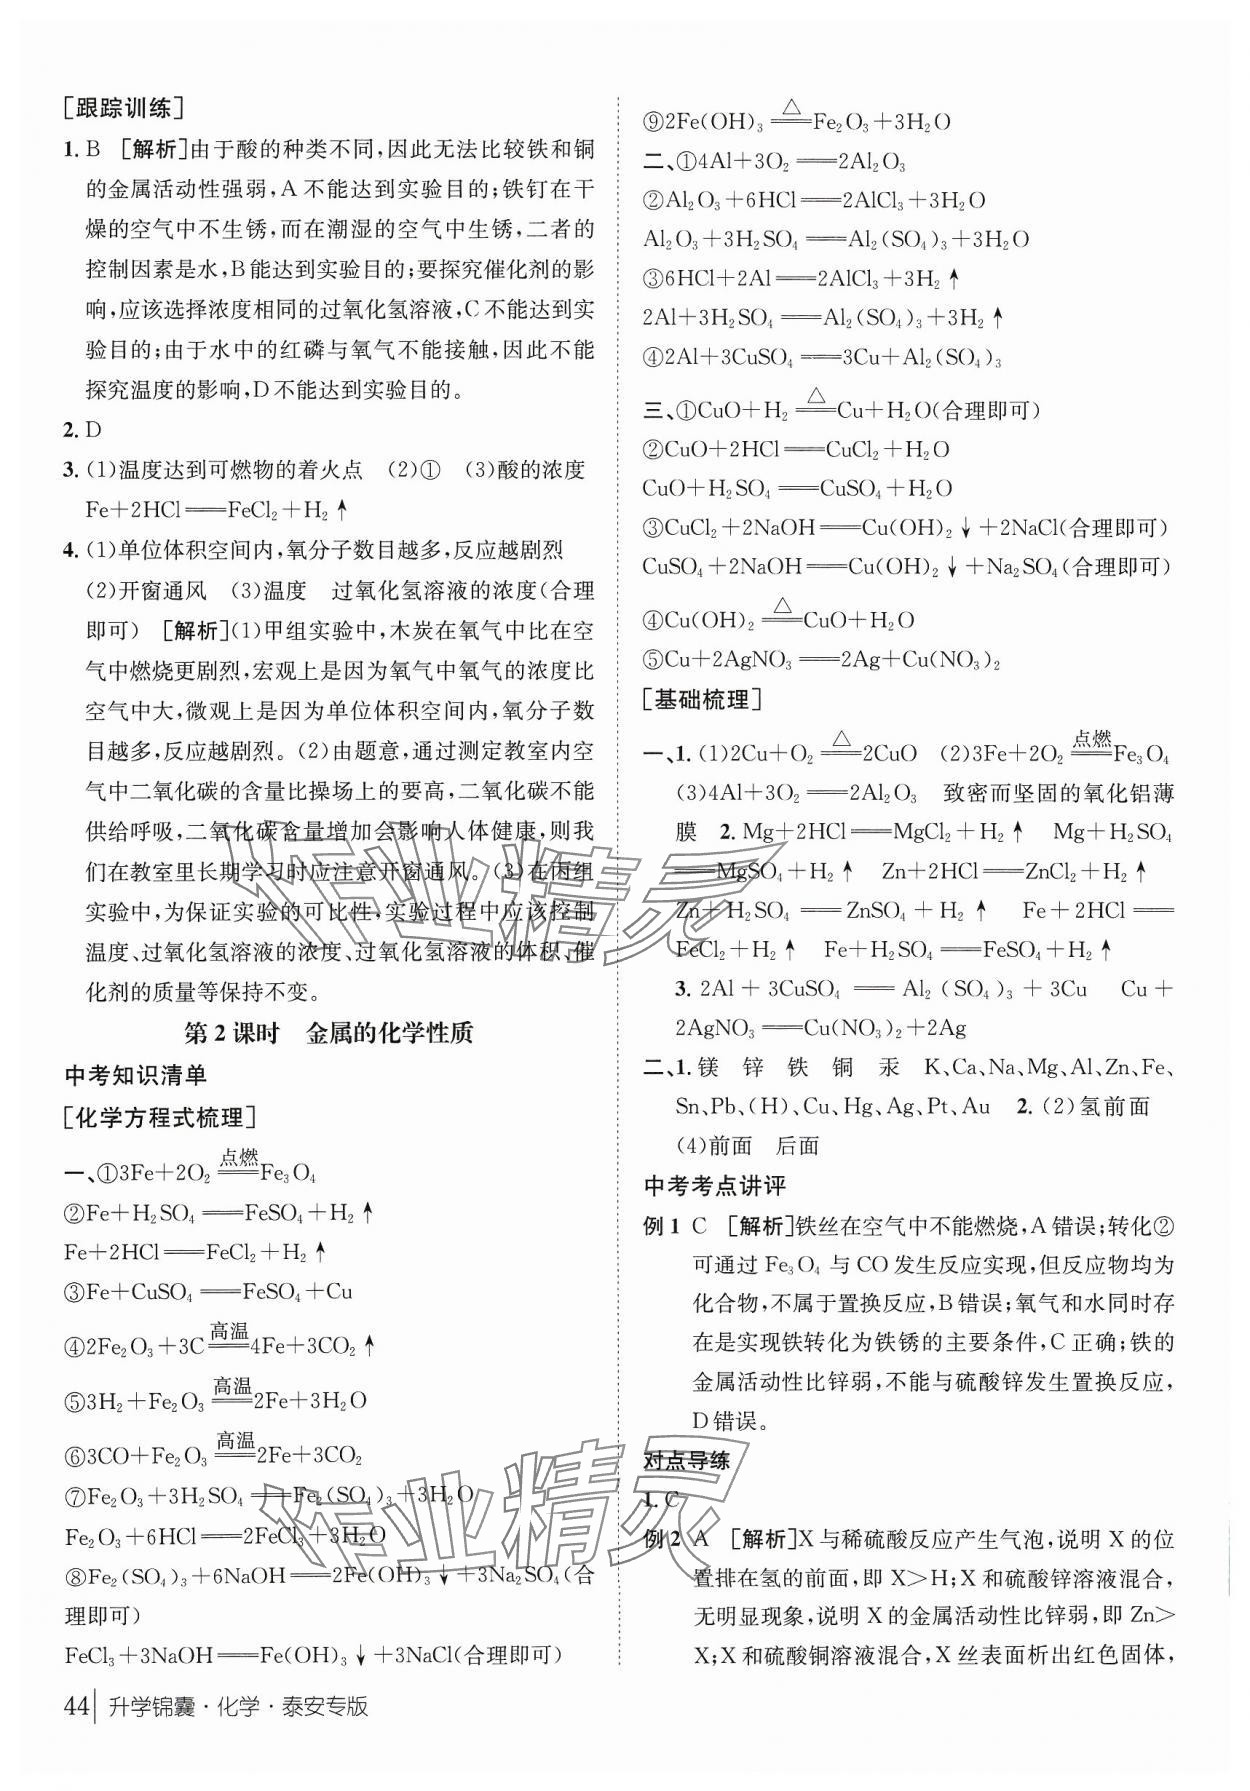 [跟踪训练]
1. B [解析]由于酸的种类不同,因此无法比较铁和铜
的金属活动性强弱,A 不能达到实验目的;铁钉在干
燥的空气中不生锈,而在潮湿的空气中生锈,二者的
控制因素是水,B能达到实验目的;要探究催化剂的影
响,应该选择浓度相同的过氧化氢溶液,C不能达到实
验目的;由于水中的红磷与氧气不能接触,因此不能
探究温度的影响,D不能达到实验目的。
2. D
3. (1)温度达到可燃物的着火点 (2)① (3)酸的浓度
Fe+2HCl══FeCl₂+H₂↑
4. (1)单位体积空间内,氧分子数目越多,反应越剧烈
(2)开窗通风 (3)温度 过氧化氢溶液的浓度(合理
即可) [解析](1)甲组实验中,木炭在氧气中比在空
气中燃烧更剧烈,宏观上是因为氧气中氧气的浓度比
空气中大,微观上是因为单位体积空间内,氧分子数
目越多,反应越剧烈。(2)由题意,通过测定教室内空
气中二氧化碳的含量比操场上的要高,二氧化碳不能
供给呼吸,二氧化碳含量增加会影响人体健康,则我
们在教室里长期学习时应注意开窗通风。(3)在丙组
实验中,为保证实验的可比性,实验过程中应该控制
温度、过氧化氢溶液的浓度、过氧化氢溶液的体积、催
化剂的质量等保持不变。
第 2 课时 金属的化学性质
中考知识清单
[化学方程式梳理]
一、①3Fe+2O₂ 点燃══ Fe₃O₄
②Fe+H₂SO₄══FeSO₄+H₂↑
Fe+2HCl══FeCl₂+H₂↑
③Fe+CuSO₄══FeSO₄+Cu
④2Fe₂O₃+3C 高温══ 4Fe+3CO₂↑
⑤3H₂+Fe₂O₃ 高温══ 2Fe+3H₂O
⑥3CO+Fe₂O₃ 高温══ 2Fe+3CO₂
⑦Fe₂O₃+3H₂SO₄══Fe₂(SO₄)₃+3H₂O
Fe₂O₃+6HCl══2FeCl₃+3H₂O
⑧Fe₂(SO₄)₃+6NaOH══2Fe(OH)₃↓+3Na₂SO₄(合
理即可)
FeCl₃+3NaOH══Fe(OH)₃↓+3NaCl(合理即可)
⑨2Fe(OH)₃ △══ Fe₂O₃+3H₂O
二、①4Al+3O₂══2Al₂O₃
②Al₂O₃+6HCl══2AlCl₃+3H₂O
Al₂O₃+3H₂SO₄══Al₂(SO₄)₃+3H₂O
③6HCl+2Al══2AlCl₃+3H₂↑
2Al+3H₂SO₄══Al₂(SO₄)₃+3H₂↑
④2Al+3CuSO₄══3Cu+Al₂(SO₄)₃
三、①CuO+H₂ △══ Cu+H₂O(合理即可)
②CuO+2HCl══CuCl₂+H₂O
CuO+H₂SO₄══CuSO₄+H₂O
③CuCl₂+2NaOH══Cu(OH)₂↓+2NaCl(合理即可)
CuSO₄+2NaOH══Cu(OH)₂↓+Na₂SO₄(合理即可)
④Cu(OH)₂ △══ CuO+H₂O
⑤Cu+2AgNO₃══2Ag+Cu(NO₃)₂
[基础梳理]
一、1. (1)2Cu+O₂ △══ 2CuO (2)3Fe+2O₂ 点燃══ Fe₃O₄
(3)4Al+3O₂══2Al₂O₃ 致密而坚固的氧化铝薄
膜 2. Mg+2HCl══MgCl₂+H₂↑ Mg+H₂SO₄
══MgSO₄+H₂↑ Zn+2HCl══ZnCl₂+H₂↑
Zn+H₂SO₄══ZnSO₄+H₂↑ Fe+2HCl══
FeCl₂+H₂↑ Fe+H₂SO₄══FeSO₄+H₂↑
3. 2Al+3CuSO₄══Al₂(SO₄)₃+3Cu Cu+
2AgNO₃══Cu(NO₃)₂+2Ag
二、1. 镁 锌 铁 铜 汞 K、Ca、Na、Mg、Al、Zn、Fe、
Sn、Pb、(H)、Cu、Hg、Ag、Pt、Au 2. (2)氢前面
(4)前面 后面
中考考点讲评
例 1 C [解析]铁丝在空气中不能燃烧,A 错误;转化②
可通过 Fe₃O₄ 与 CO 发生反应实现,但反应物均为
化合物,不属于置换反应,B 错误;氧气和水同时存
在是实现铁转化为铁锈的主要条件,C 正确;铁的
金属活动性比锌弱,不能与硫酸锌发生置换反应,
D 错误。
对点导练
1. C
例 2 A [解析]X 与稀硫酸反应产生气泡,说明 X 的位
置排在氢的前面,即 X>H;X 和硫酸锌溶液混合,
无明显现象,说明 X 的金属活动性比锌弱,即 Zn>
X;X 和硫酸铜溶液混合,X 丝表面析出红色固体,
44 升学锦囊·化学·泰安专版
作业精灵
作业精灵